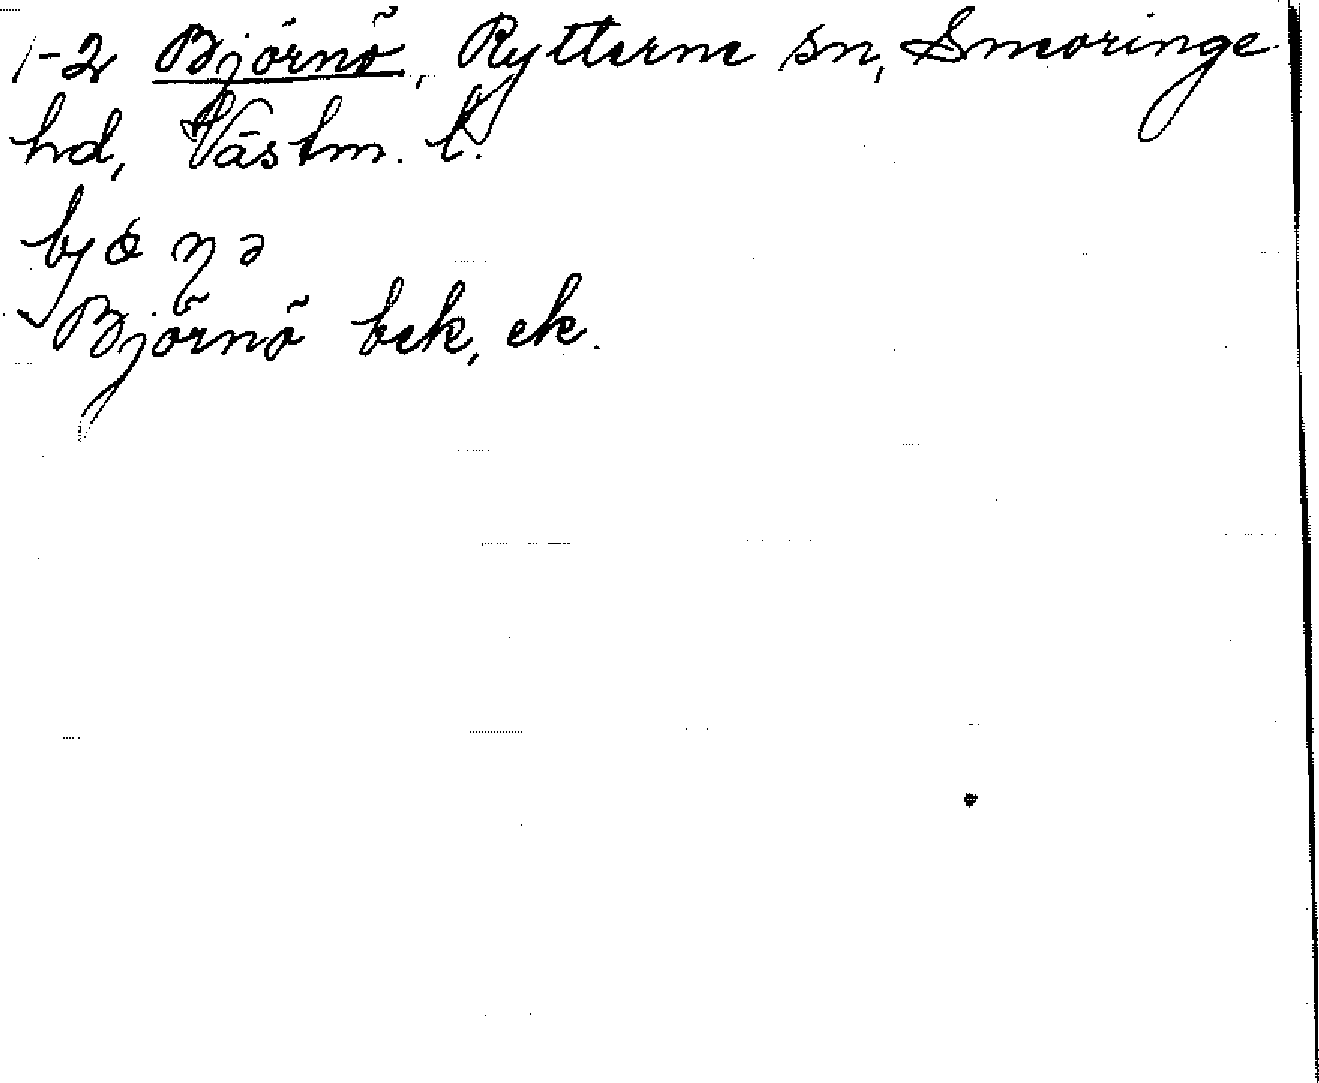 1-2 Björnö, Rytterne sn, Snevringe
hd, Västm. l.
Björnö bek, ek.